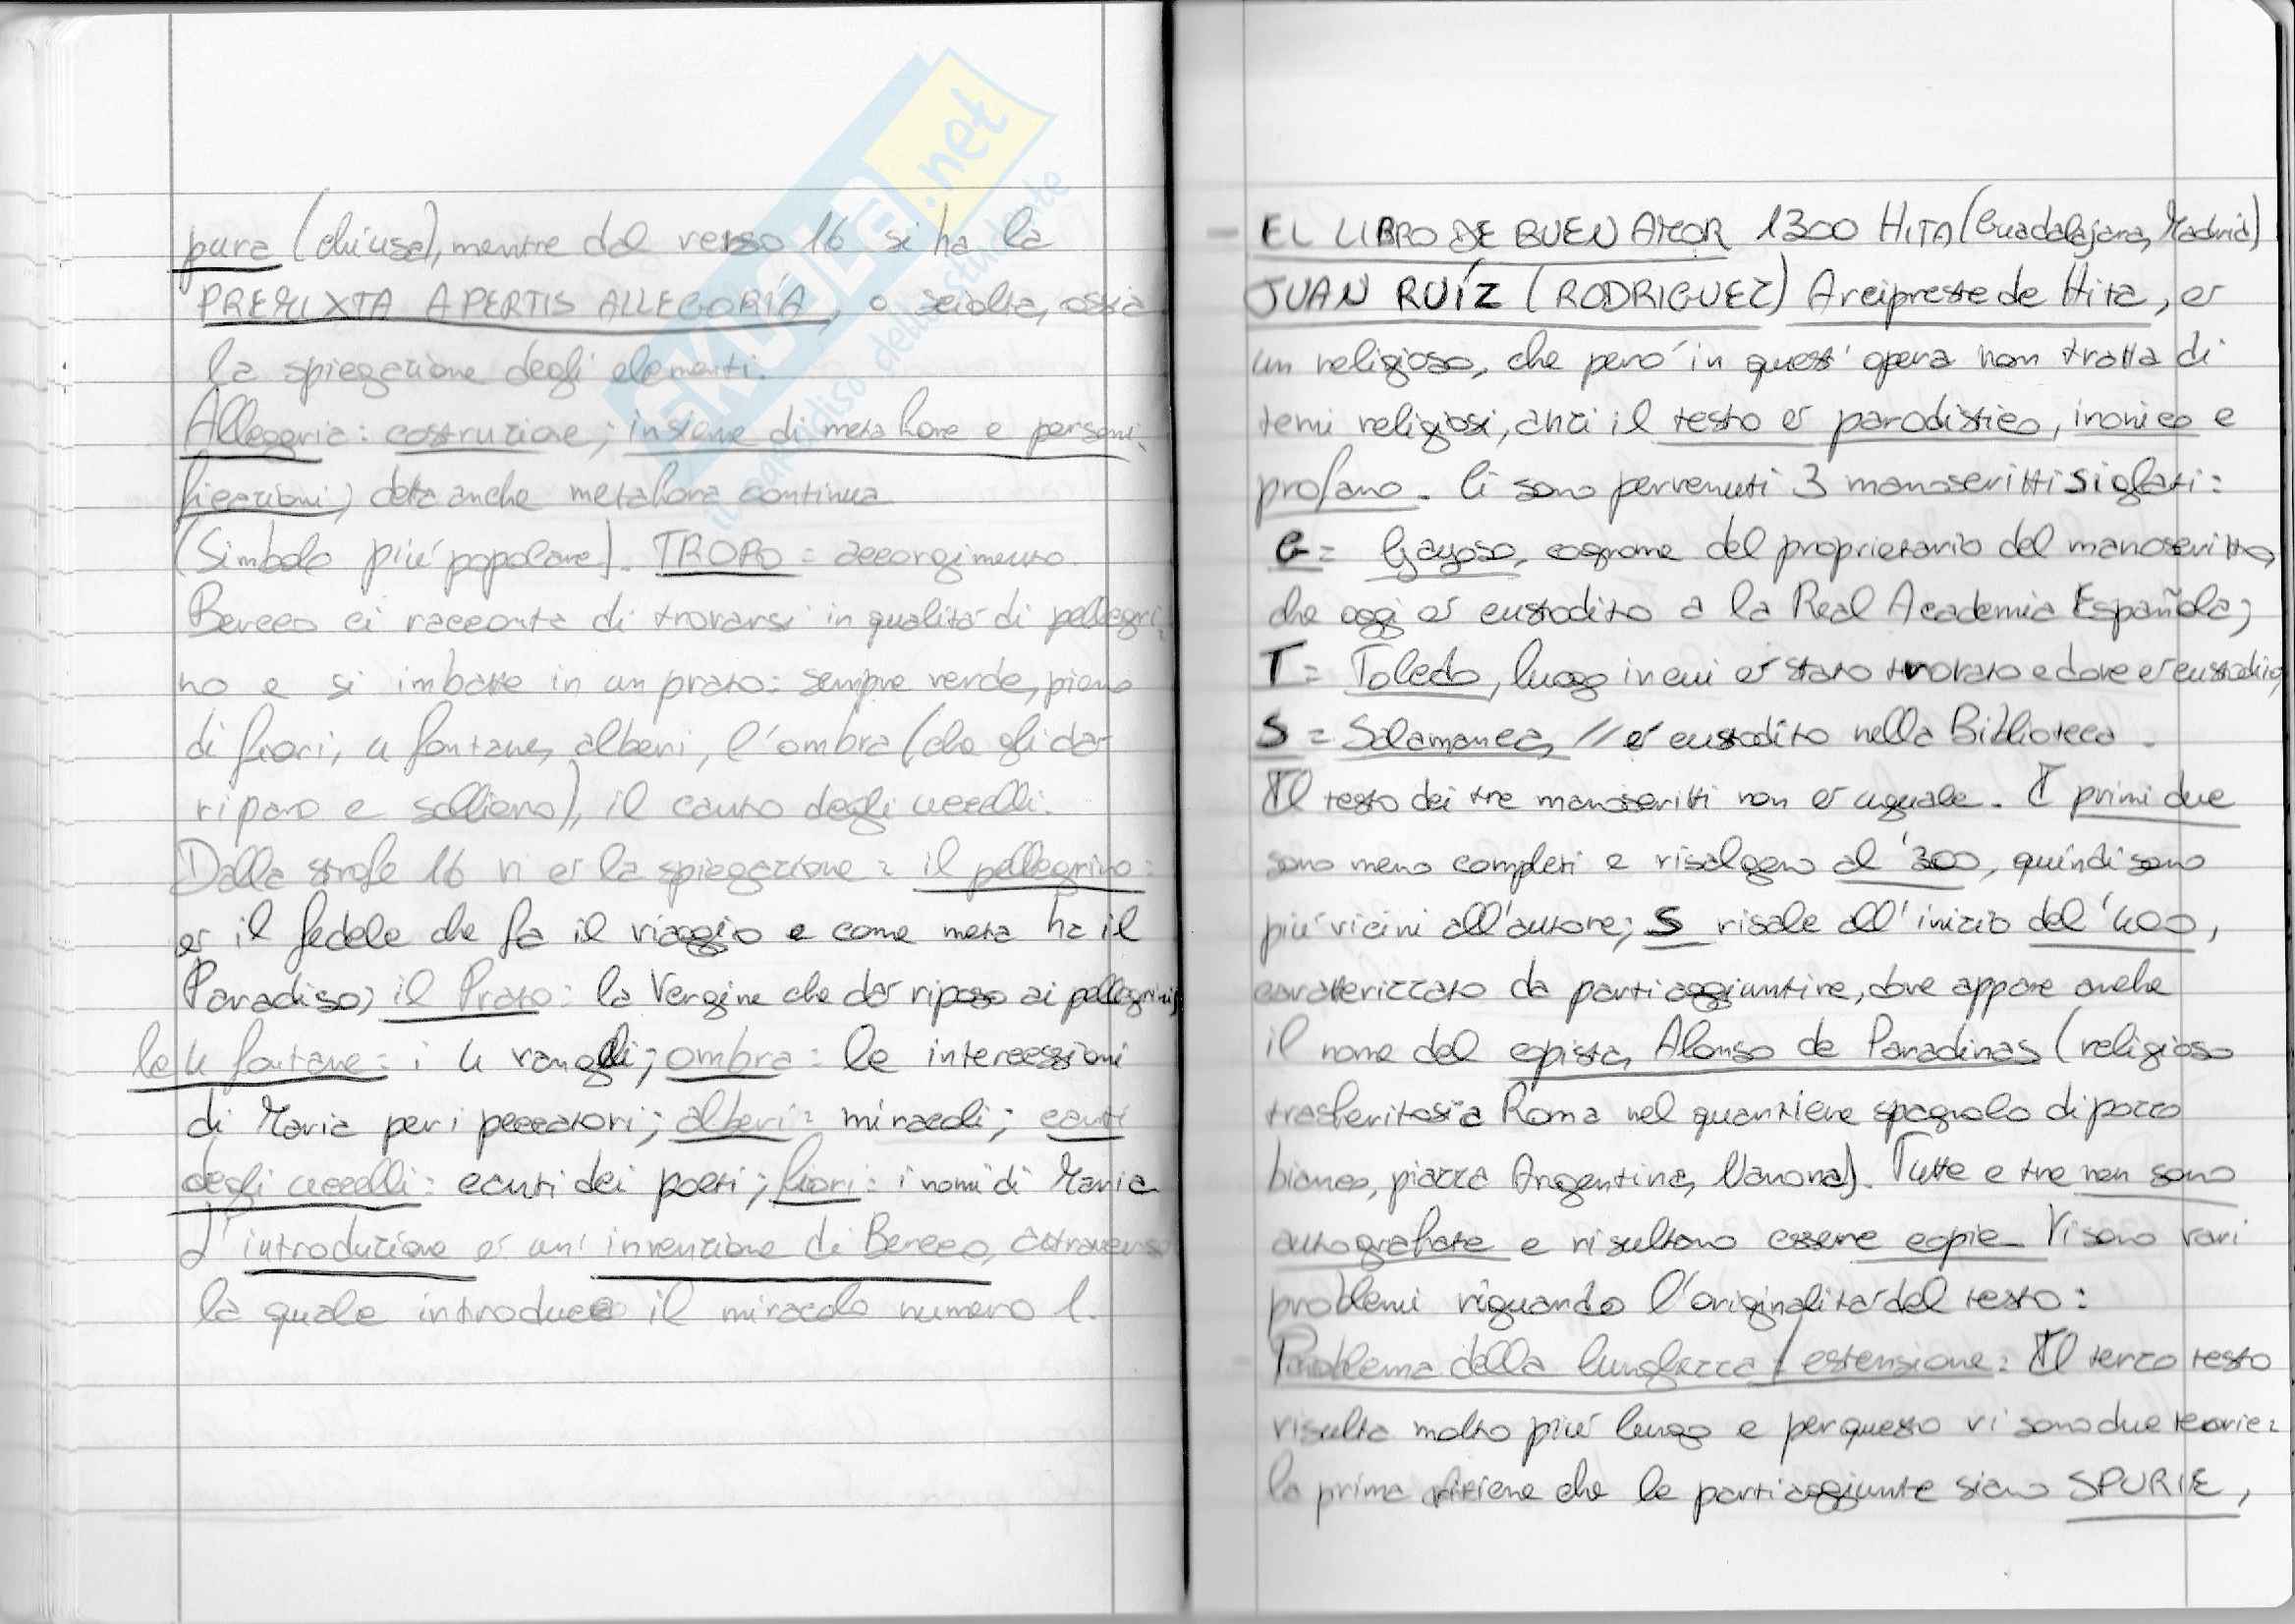 pura (chiusa), mentre dal verso 16 si ha la
PREMIXTA APERTIS ALLEGORÍA, o sciolta, ossia
la spiegazione degli elementi.
Allegoria: costruzione; insieme di metafore e personi-
ficazioni, detta anche metafora continua
(Simbolo piú popolare). TROPO = accorgimento.
Berceo ci racconta di trovarsi in qualitá di pellegri-
no e si imbatte in un prato: sempre verde, pieno
di fiori, 4 fontane, alberi, l'ombra (che gli dá
riparo e sollievo), il canto degli uccelli.
Dalla strofe 16 vi é la spiegazione: il pellegrino:
é il fedele che fa il viaggio e come meta ha il
Paradiso; il Prato: la Vergine che dá riposo ai pellegrini;
le 4 fontane: i 4 vangeli; ombra: le intercessioni
di Maria per i peccatori; alberi: miracoli; canti
degli uccelli: canti dei poeti; fiori: i nomi di Maria
L'introduzione é un'invenzione di Berceo, attraverso
la quale introduce il miracolo numero 1.
- EL LIBRO DE BUEN AMOR 1300 HITA (Guadalajara, Madrid)
JUAN RUÍZ (RODRIGUEZ) Arcipreste de Hita, é
un religioso, che peró in quest'opera non tratta di
temi religiosi, anzi il testo é parodistico, ironico e
profano. Ci sono pervenuti 3 manoscritti siglati:
G = Gayoso, cognome del proprietario del manoscritto,
che oggi é custodito a la Real Academia Española;
T = Toledo, luogo in cui é stato trovato e dove é custodito;
S = Salamanca, // é custodito nella Biblioteca.
Il testo dei tre manoscritti non é uguale. I primi due
sono meno completi e risalgono al '300, quindi sono
piú vicini all'autore; S risale all'inizio del '400,
caratterizzato da parti aggiuntive, dove appare anche
il nome del copista, Alonso de Paradinas (religioso
trasferitosi a Roma nel quartiere spagnolo di pozzo
bianco, piazza Argentina, Navona). Tutte e tre non sono
autografate e risultano essere copie. Vi sono vari
problemi riguardo l'originalitá del testo:
Problema della lunghezza / estensione: Il terzo testo
risulta molto piú lungo e per questo vi sono due teorie:
la prima ritiene che le parti aggiunte siano SPURIE,
SKUOLA.net
il paradiso dello studente